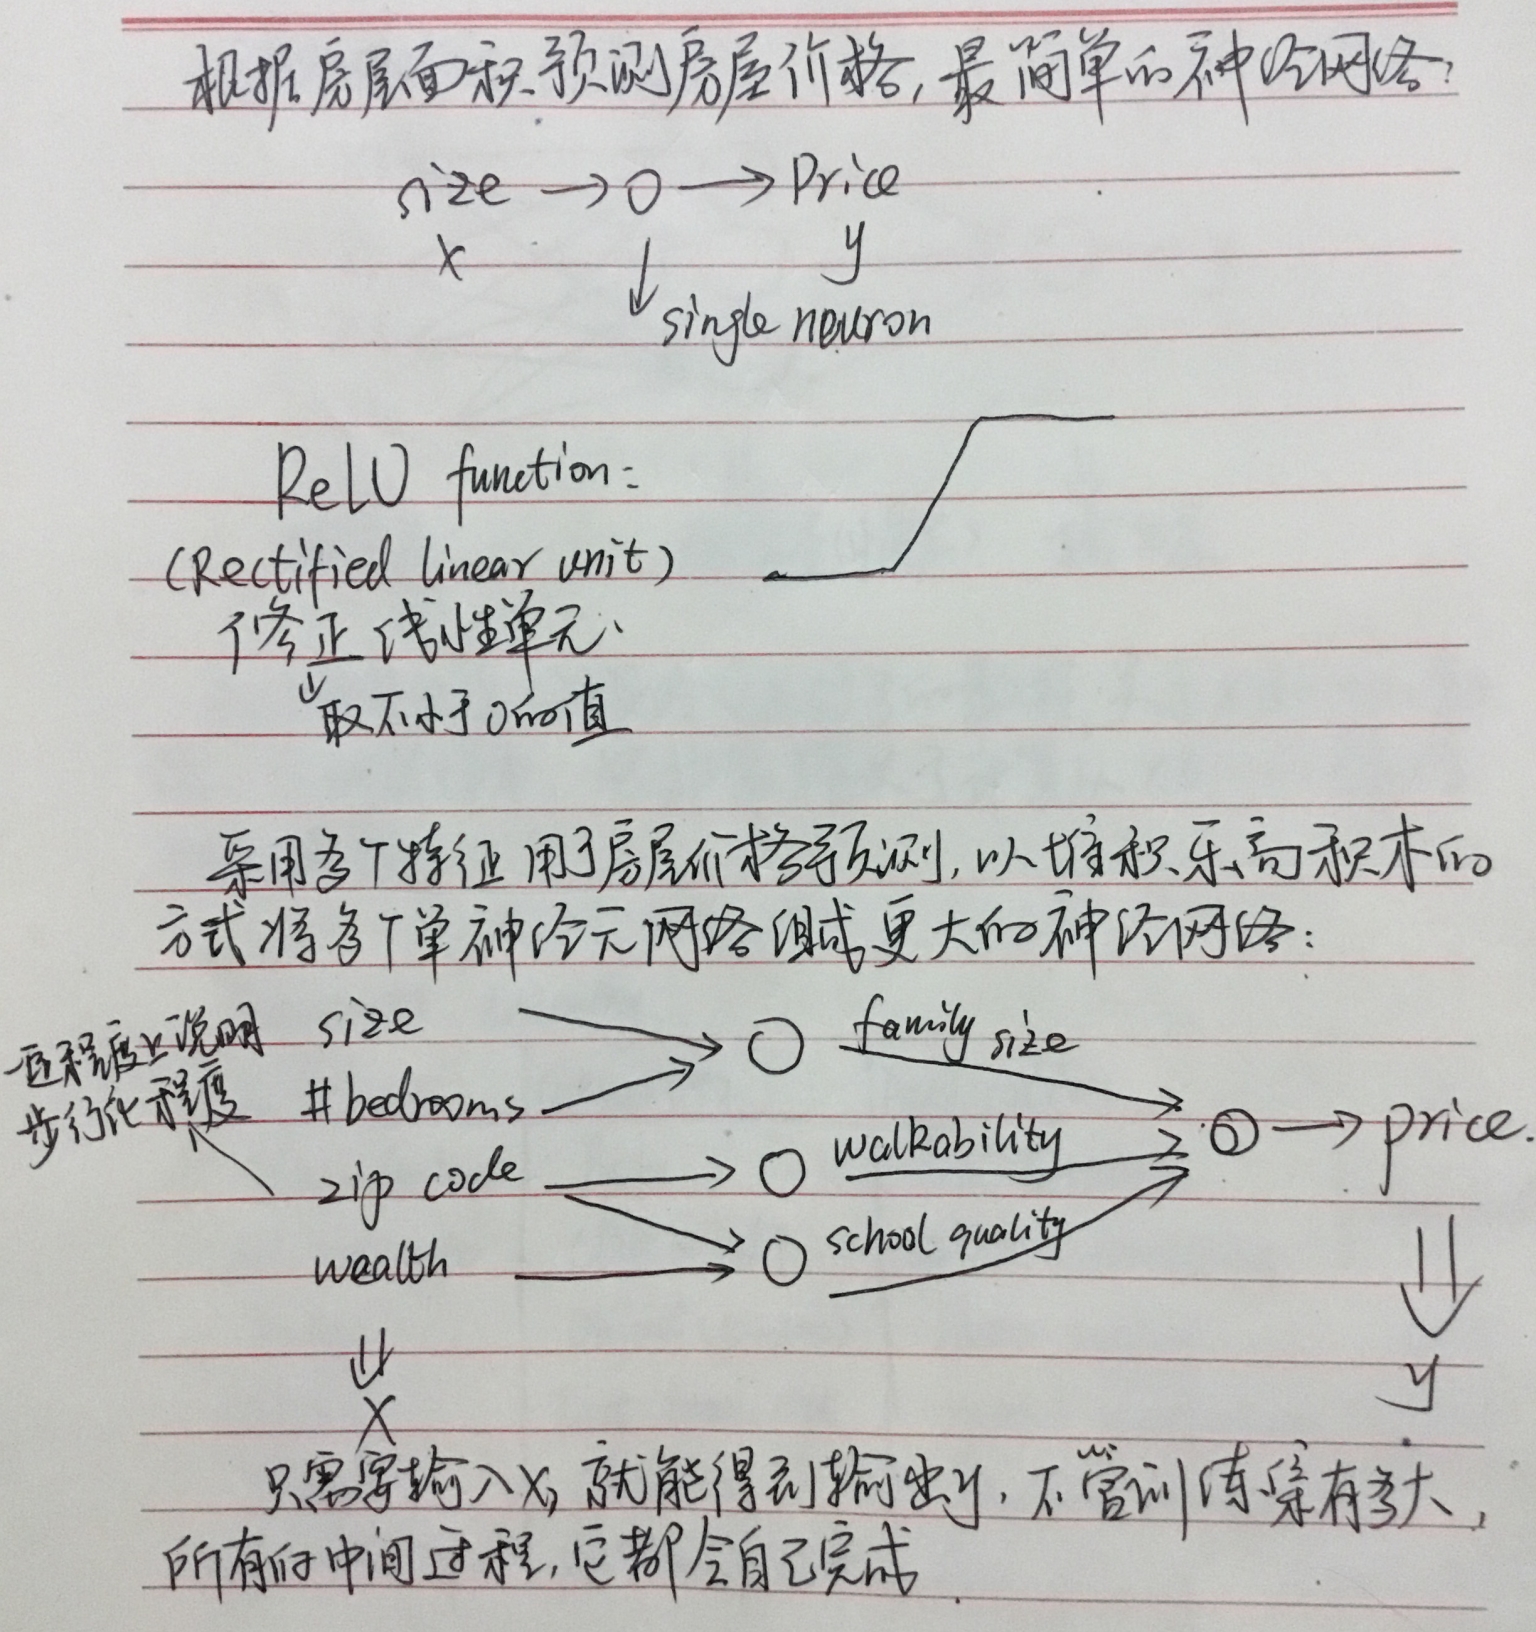 根据房屋面积预测房屋价格,最简单的神经网络:
size → O → Price
x y
↓ single neuron
ReLU function:
(Rectified linear unit)
修正线性单元.
↓
取不小于0的值
采用多个特征用于房屋价格预测,以堆积乐高积木的
方式将多个单神经元网络组成更大的神经网络:
size
family size
#bedrooms
一定程度上说明
步行化程度
walkability
→ price.
zip code
school quality
wealth
⇓
x
⇓
y
只需要输入x,就能得到输出y,不管训练集有多大,
所有的中间过程,它都会自己完成